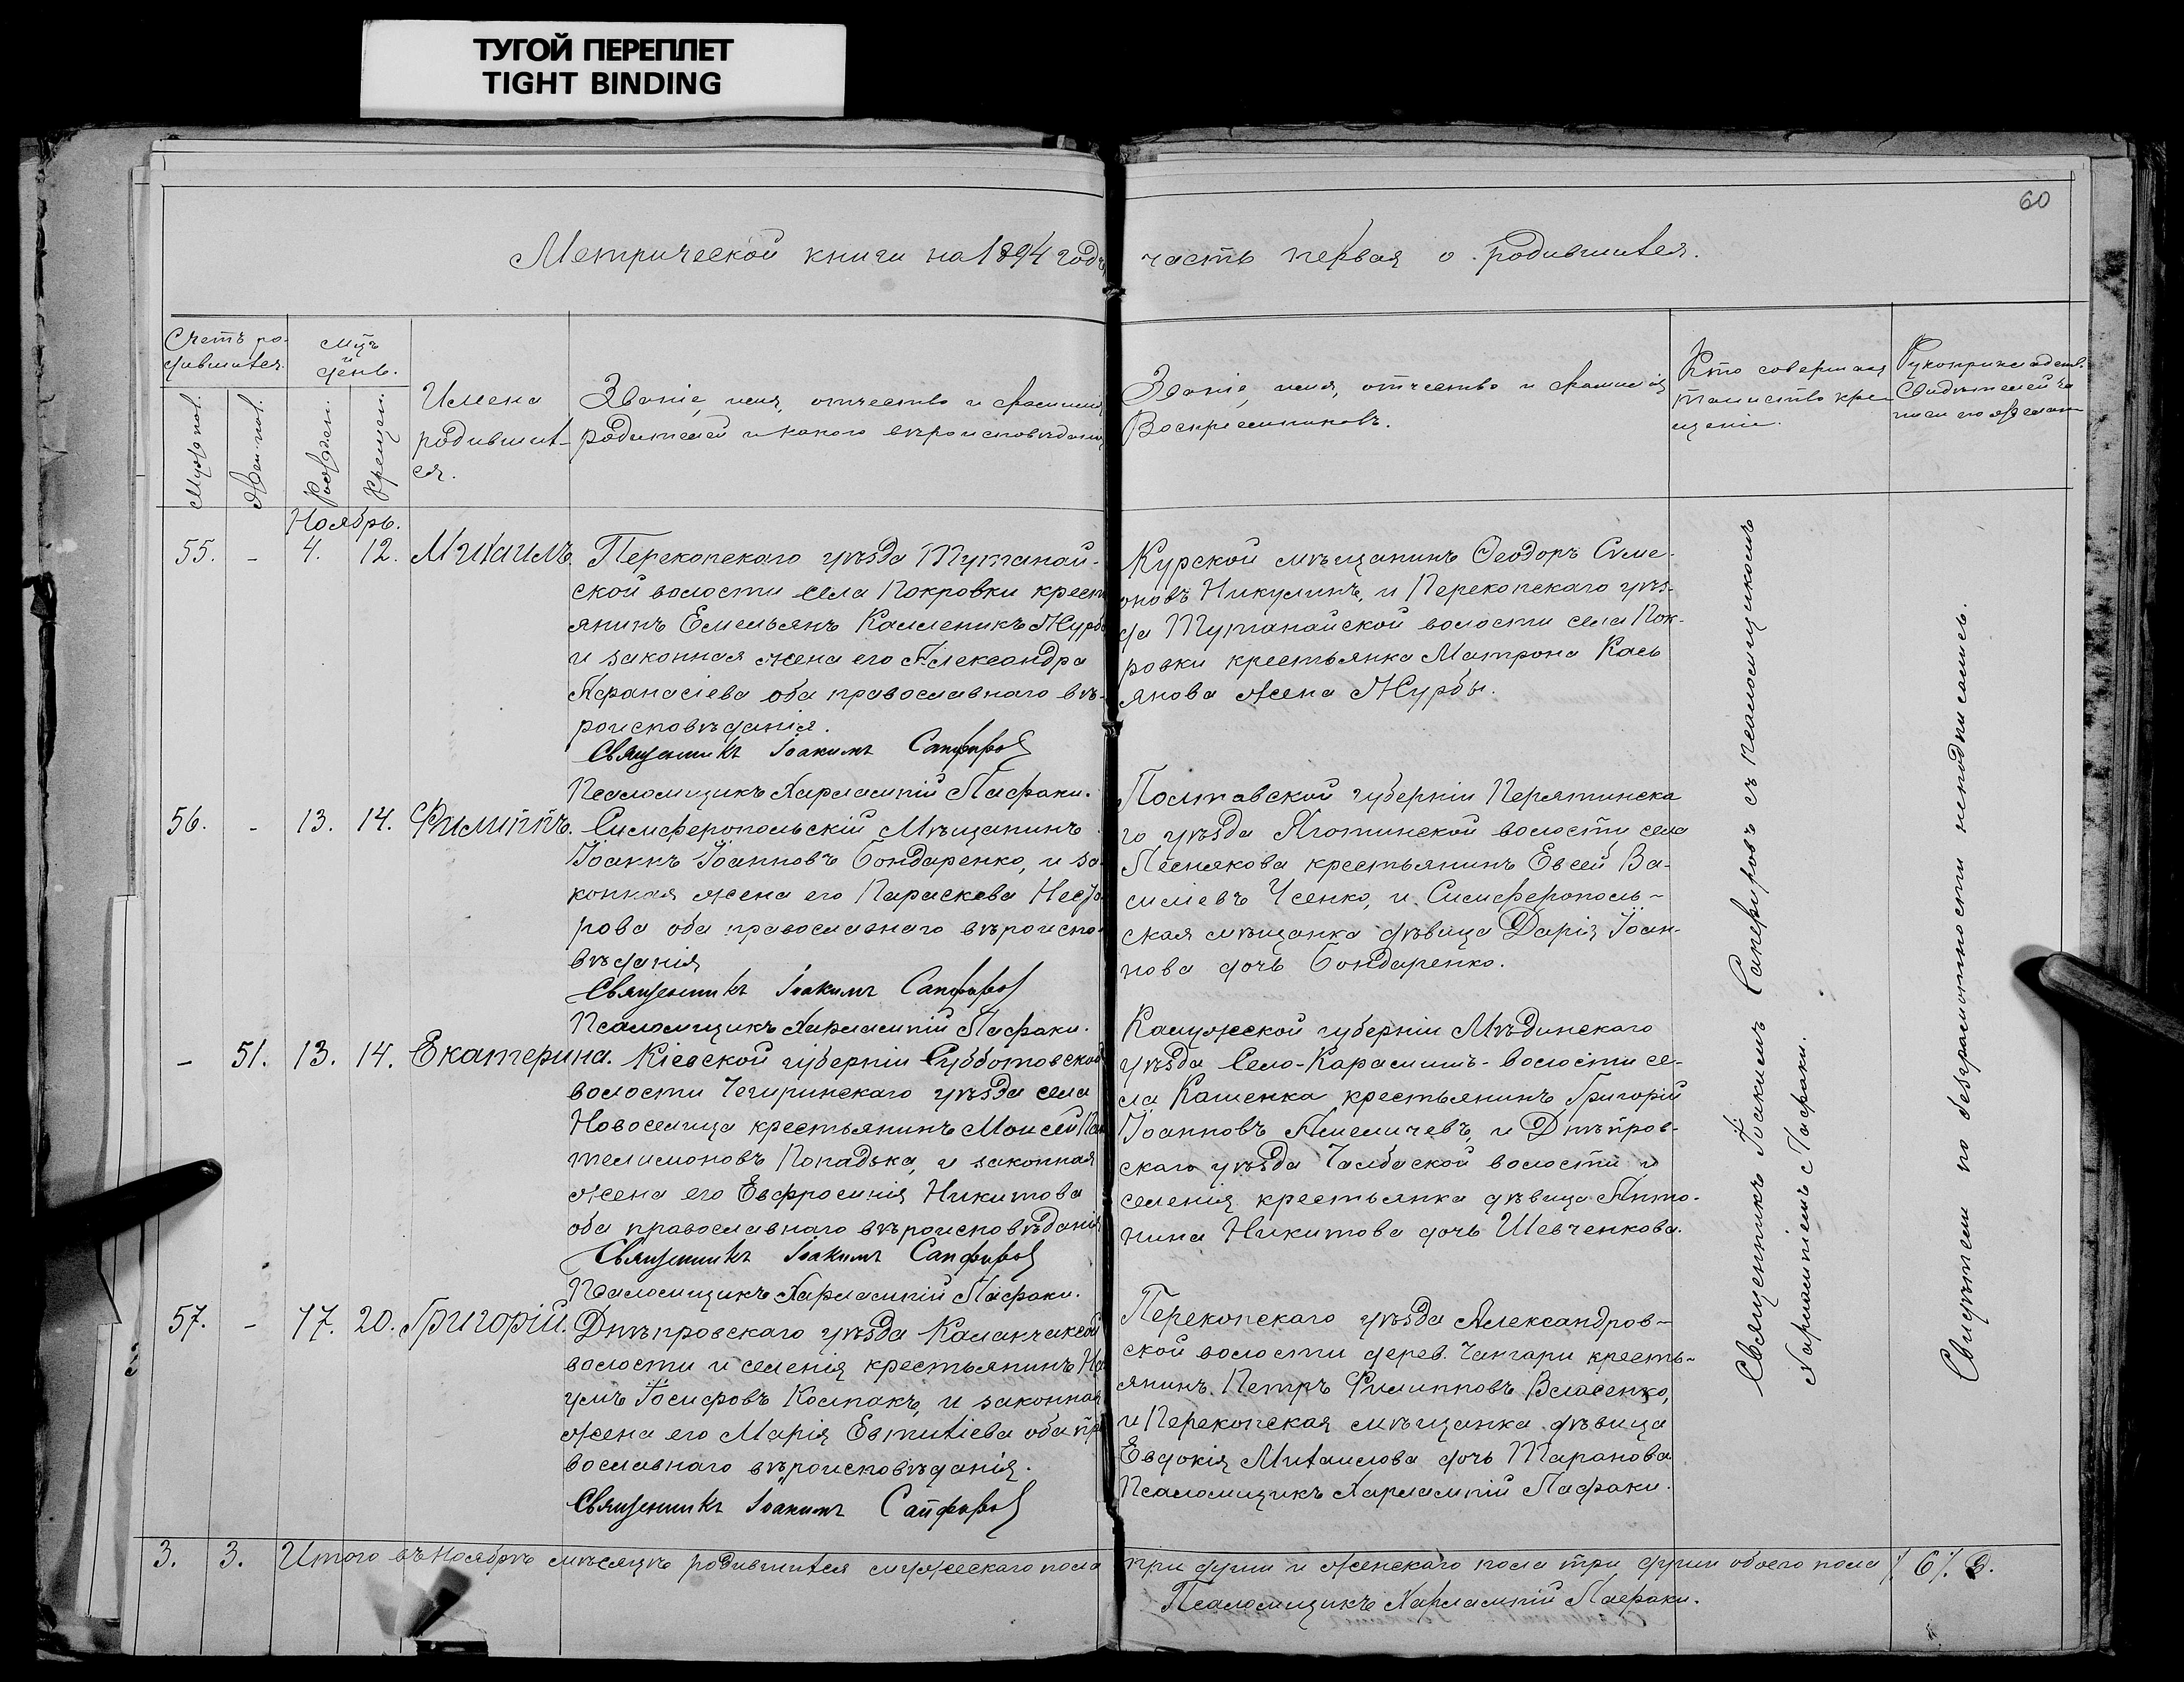 ТУГОЙ ПЕРЕПЛЕТ
TIGHT BINDING
60
Метрической книги на 1894 годъ часть первая о родившихся.
Счетъ ро-
дившихся.
Мужс. пол.
Жен. пол.
Мцъ
и
день.
Рожден.
Крещен.
Имена
родивших-
ся.
Званіе, имя, отчество и фамилія
родителей и какого вѣроисповѣданія
Званіе, имя, отчество и фамилія
Воспріемниковъ.
Кто совершалъ
таинство кре-
щенія.
Рукоприкладств.
свидѣтелей за-
писи по желан
Ноябрь.
55. - 4. 12. Михаилъ.
Перекопскаго уѣзда Тутанай-
ской волости села Покровки крест
янинъ Емельянъ Каллепикъ Журба
и законная жена его Александра
Афанасіева оба православнаго вѣ-
роисповѣданія.
Священникъ Іоакимъ Сапфиров
Псаломщикъ Харлампій Пафраки.
Курской мѣщанинъ Ѳеодоръ Симе-
оновъ Никулинъ, и Перекопскаго уѣз-
да Тутанайской волости села Пок-
ровки крестьянка Матрона Кась
янова жена Журбы.
56. - 13. 14. Филиппъ.
Симферопольскій Мѣщанинъ
Іоаннъ Іоанновъ Бондаренко, и за-
конная жена его Параскева Несто-
рова оба православнаго вѣроиспо-
вѣданія
Священникъ Іоакимъ Сапфиров
Псаломщикъ Харлампій Пафраки.
Полтавской губерніи Пирятинска
го уѣзда Яготинской волости села
Леснякова крестьянинъ Евсей Ва-
силіевъ Усенко, и Симферополь-
ская мѣщанка дѣвица Дарія Іоан-
нова дочь Бондаренко.
- 51. 13. 14. Екатерина.
Кіевской губерніи Субботовской
волости Чегиринскаго уѣзда села
Новоселица крестьянинъ Моисей Пан
телимоновъ Попадька, и законная
жена его Евфросинія Никитова
оба православнаго вѣроисповѣданія
Священникъ Іоакимъ Сапфиров
Псаломщикъ Харлампій Пафраки.
Калужской губерніи Мѣдинскаго
уѣзда Село-Карамышъ-волости се-
ла Кашенка крестьянинъ Григорій
Іоанновъ Амеличевъ, и Днѣпров-
скаго уѣзда Чалбаской волости и
селенія крестьянка дѣвица Анто-
нина Никитова дочь Шевченкова.
57. - 17. 20. Григорій.
Днѣпровскаго уѣзда Каланчакской
волости и селенія крестьянинъ На
умъ Іосифовъ Колпакъ, и законная
жена его Марія Евтихіева оба пра
вославнаго вѣроисповѣданія.
Священникъ Іоакимъ Сапфиров
Перекопскаго уѣзда Александров-
ской волости дерев. Чангари кресть-
янинъ Петръ Филипповъ Власенко,
и Перекопская мѣщанка дѣвица
Евдокія Михаилова дочь Таранова
Псаломщикъ Харлампій Пафраки.
Священникъ Іоакимъ Сапфировъ съ псаломщикомъ
Харлампіемъ Пафраки.
Свидѣтели по безграмотности неподписались.
3. 3. Итого въ Ноябрѣ мѣсяцѣ родившихся мужескаго пола три души и женскаго пола три души обоего пола /. 6 /. д.
Псаломщикъ Харлампій Пафраки.